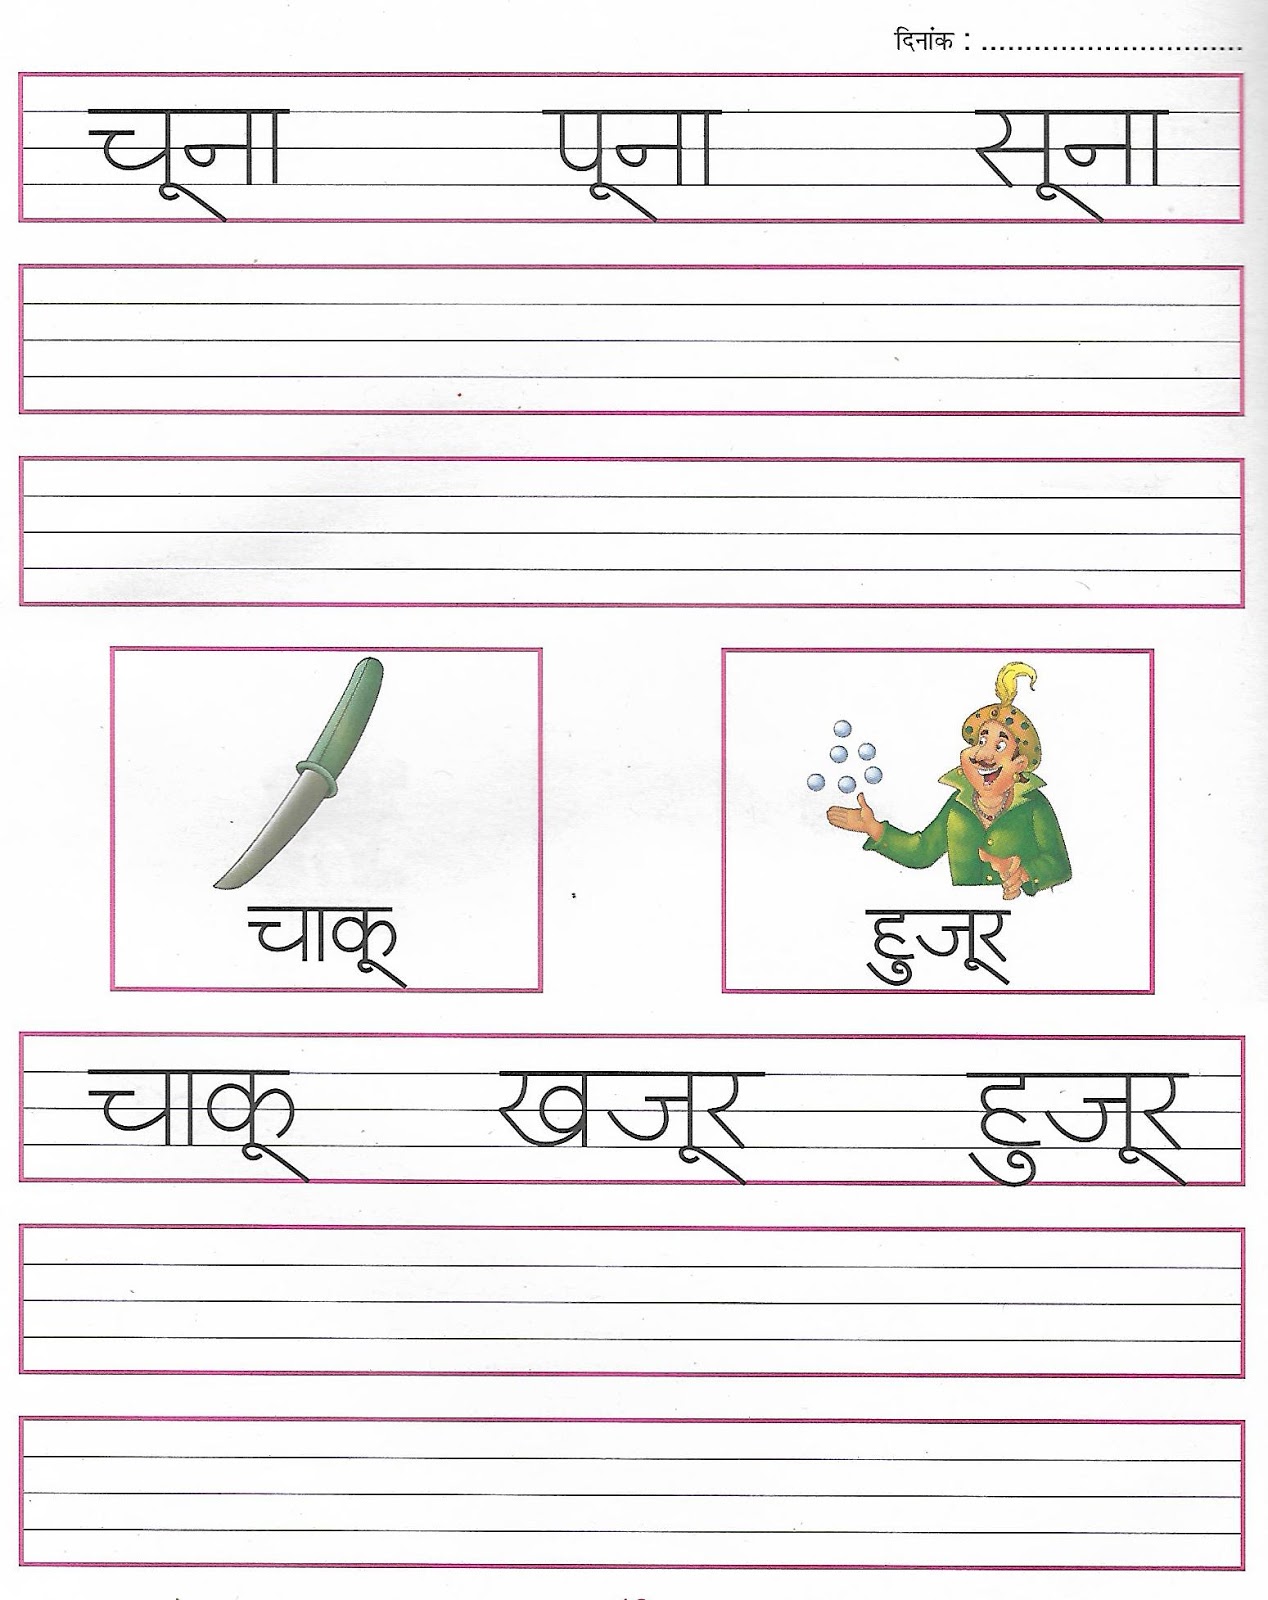 दिनांक : ..............................
चूना पूना सूना
चाकू हुजूर
चाकू खजूर हुजूर